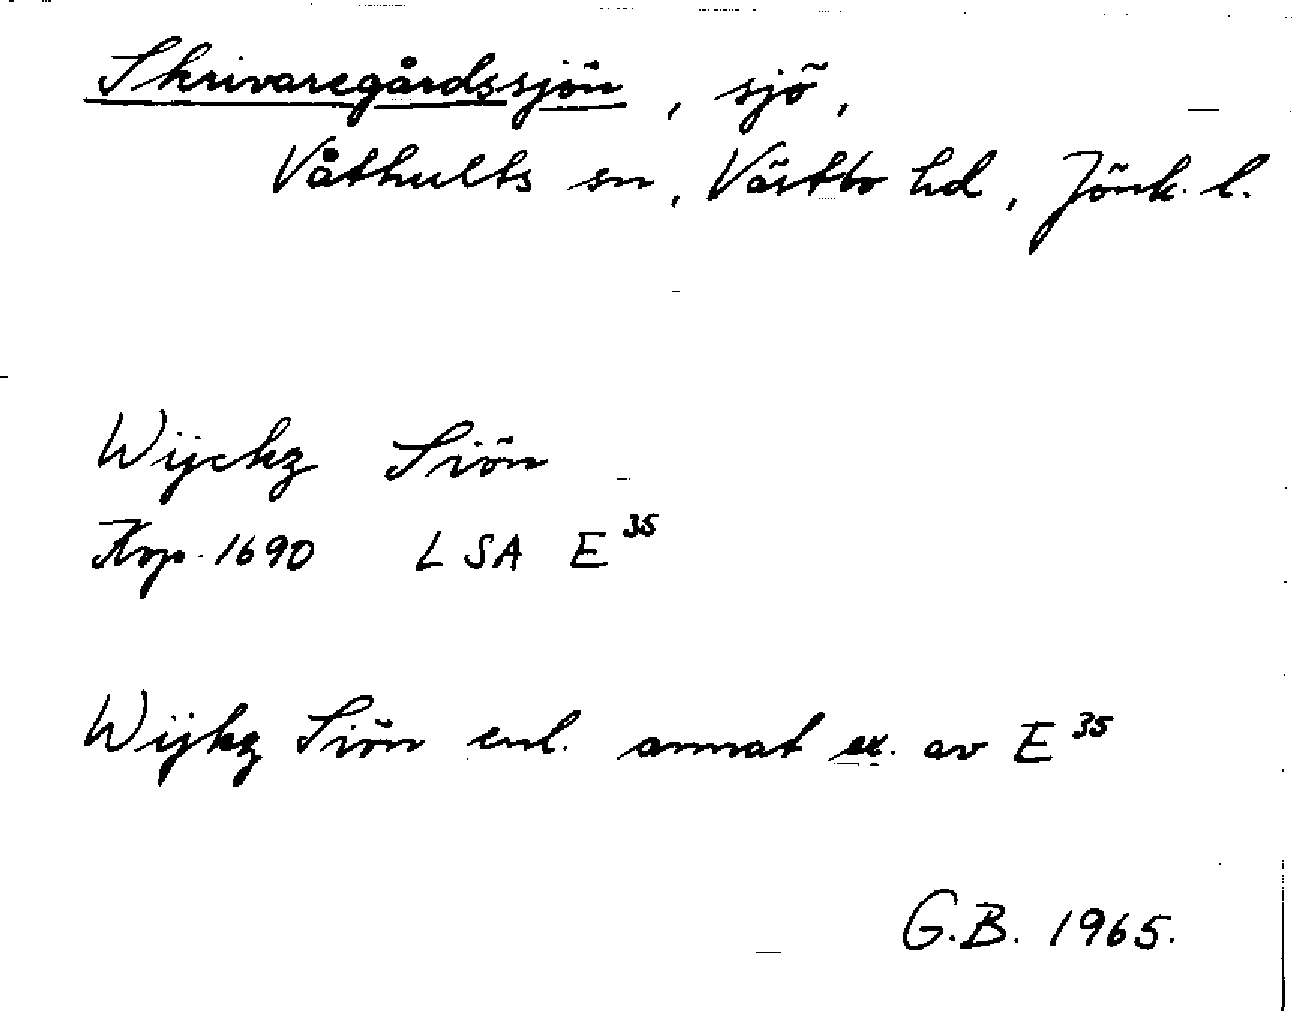 Skrivaregårdssjön, sjö,
Våthults sn, Västbo hd, Jönk. l.
Wijckz Siön
Kop. 1690 LSA E³⁵
Wijkz Siön enl. annat ex. av E³⁵
G.B. 1965.